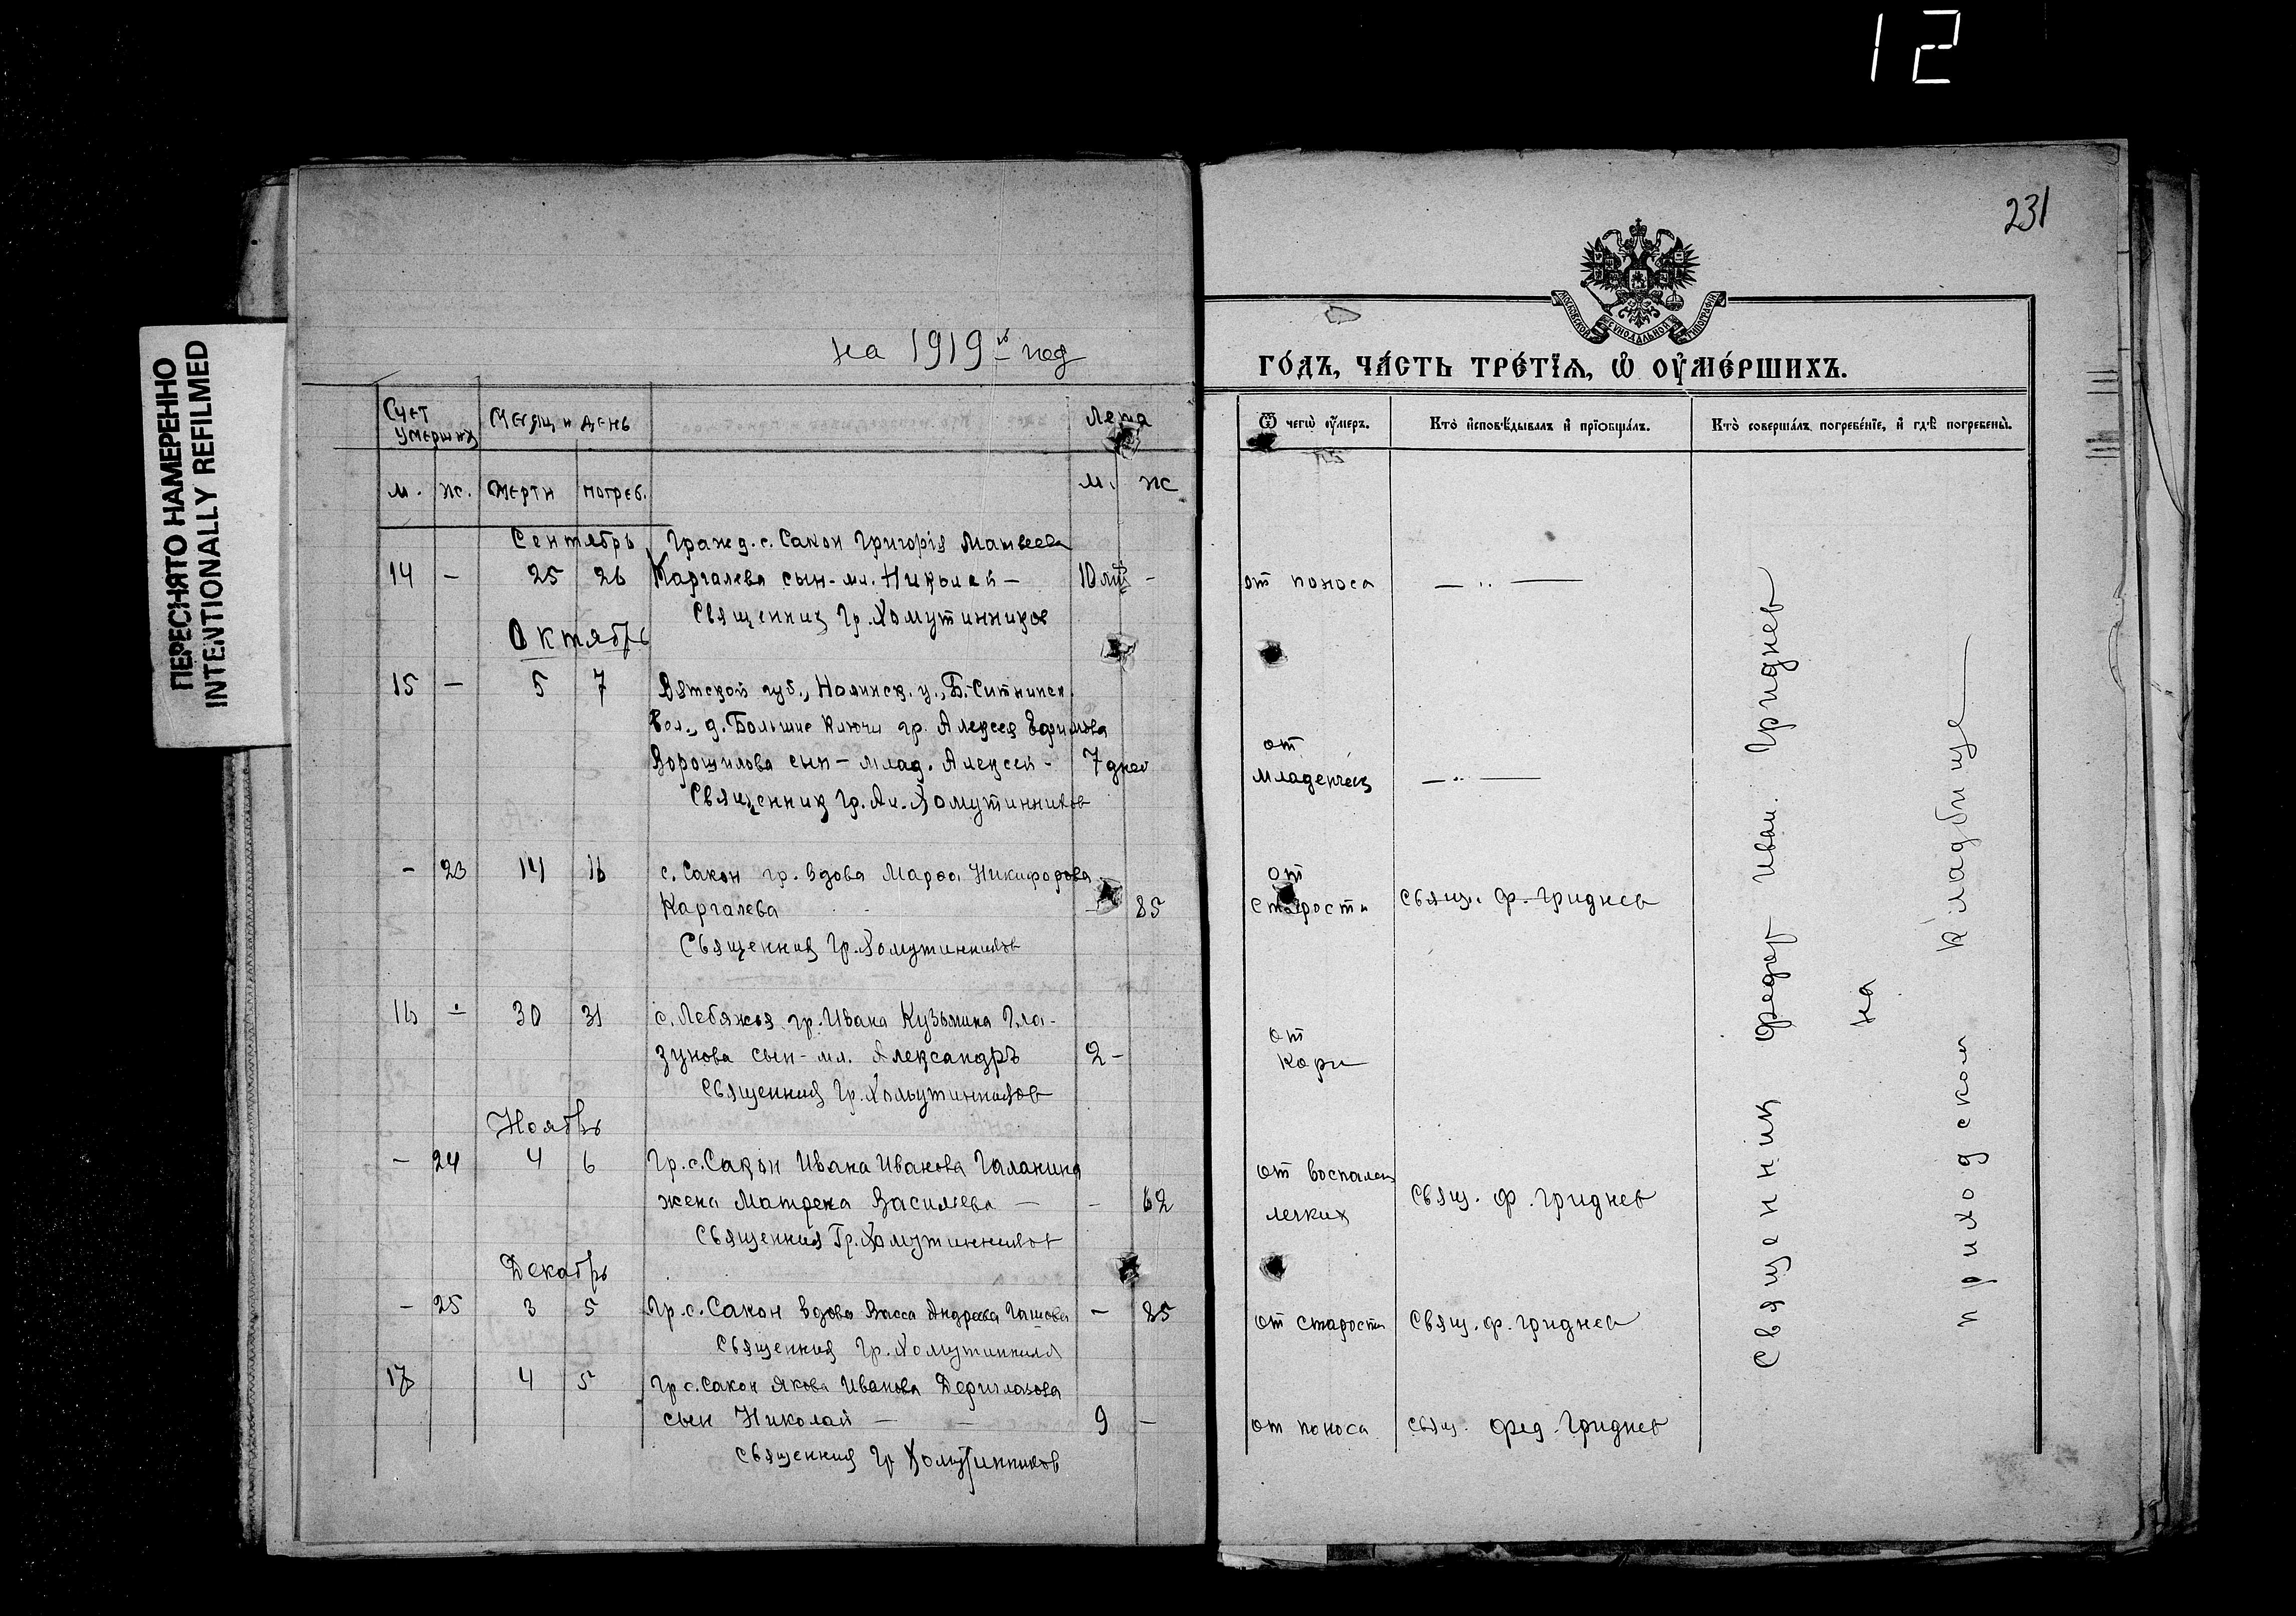 12
ПЕРЕСНЯТО НАМЕРЕННО
INTENTIONALLY REFILMED
231
на 1919й год
МОСКОВСКОЙ СѴНОДАЛЬНОЙ ТИПОГРАФІИ
ГО́ДЪ, ЧА́СТЬ ТРЕ́ТЇѦ, Ѽ ОУ҆МЕ́РШИХЪ.
Счет умерших
Месяц и день
Лета
м. ж. смерти погреб. м. ж
Ѿ чегѡ̀ ᲂу҆́меръ.
Кто̀ и҆сповѣ́дывалъ и҆ прїѻбща́лъ.
Кто̀ соверша́лъ погребе́нїе, и҆ гдѣ̀ погребены̀.
Сентябрь Гражд. с. Сакон Григорiя Матвеева
14 – 25 26 Каргалева сын-мл. Николай – 10 – от поноса — ·· —
Священник Гр. Хомутинников
Октябрь
15 – 5 7 Вятской губ., Нолинск. у., Б.-Ситминск.
вол., д. Большие Ключи гр. Алексея Ефимова
Ворошилова сын – млад. Алексей – 7 дней от младенческ — ·· —
Священник Гр. Ал. Хомутинников
– 23 14 16 с. Сакон гр. вдова Марѳа Никифорова
Каргалева – 85 от старости Свящ. Ф. Гриднев
Священник Гр. Хомутинников
16 – 30 31 с. Лебяжья гр. Ивана Кузьмина Гла-
зунова сын-мл. Александръ 2 – от кори
Священник Гр. Хомутинников
Ноябрь
– 24 4 6 Гр. с. Сакон Ивана Иванова Галанина
жена Матрена Васильева – – 62 от воспален легких Свящ. Ф. Гриднев
Священник Гр. Хомутинников
Декабрь
– 25 3 5 Гр. с. Сакон вдова Васса Андреева – 85 от старости Свящ. Ф. Гриднев
Священник Гр. Хомутинников
17 4 5 Гр. с. Сакон Якова Иванова Дериглазова
сын Николай – – 9 – от поноса Свящ. Фед. Гриднев
Священник Гр Хомутинников
Священник Федор Иван. Гриднев
на
приходском кладбище